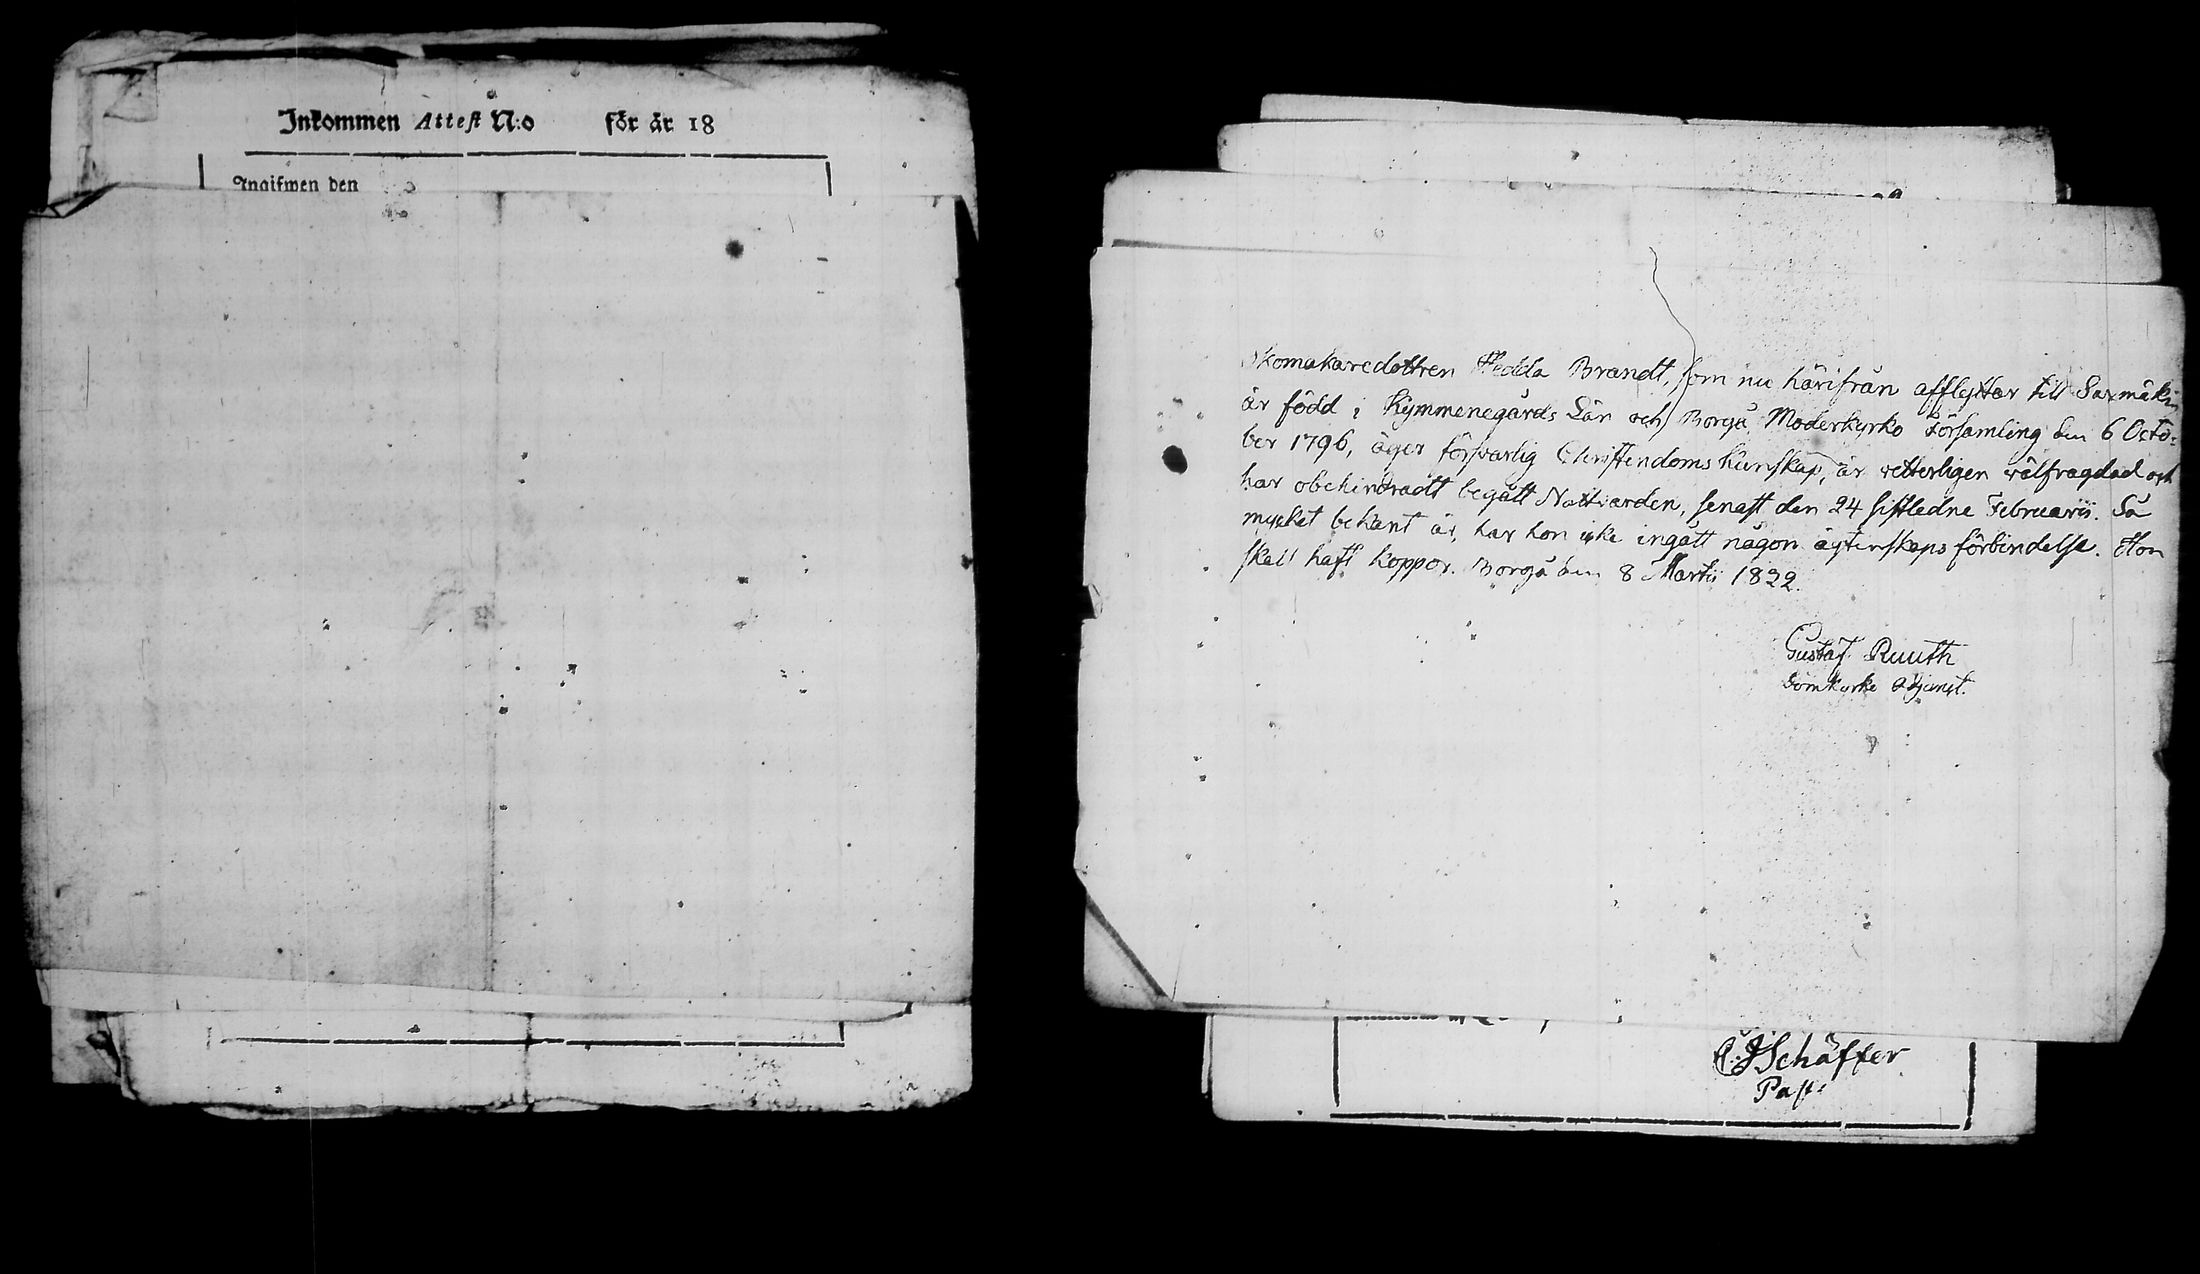 Inkommen Attest N:o för år 18
Ingifwen den
Skomakaredottren Hedda Brandt, som nu härifrån afflyttar till Saxmäki,
är född i Kymmenegårds Län och Borgå Moderkyrko Församling den 6 Octo-
ber 1796, äger försvarlig Christendoms kunskap, är vetterligen välfrägdad och
har obehindradt begått Nattvarden, senast den 24 sistledne Februarii. Så
mycket bekant är, har hon icke ingått någon ägtenskaps förbindelse. Hon
skall haft koppor. Borgå den 8 Martii 1822.
Gustaf Ruuth
Domkyrko Adjunct.
C:J Schäffer
Past: